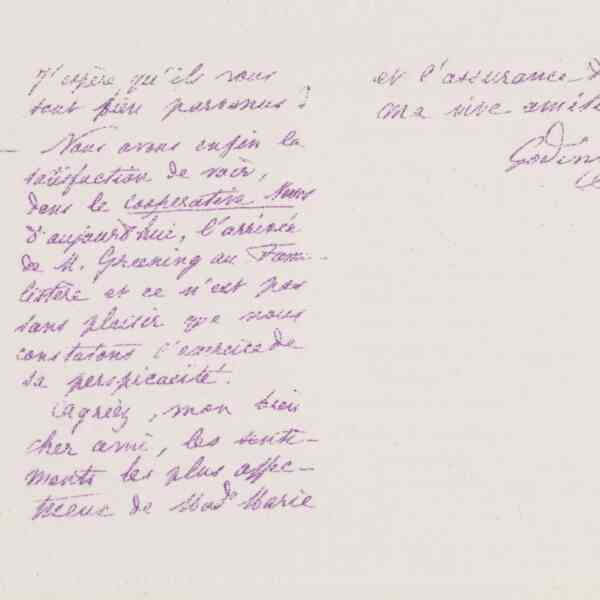 J'espère qu'ils vous
sont bien parvenus ?
Nous avons enfin la
satisfaction de voir,
dans le Cooperative News
d'aujourd'hui, l'arrivée
de M. Greening au Fami-
listère et ce n'est pas
sans plaisir que nous
constatons l'exercice de
sa perspicacité.
Agréez, mon bien
cher ami, les senti-
ments les plus affec-
tueux de Made Marie
et l'assurance d
ma vive amitié
Godin